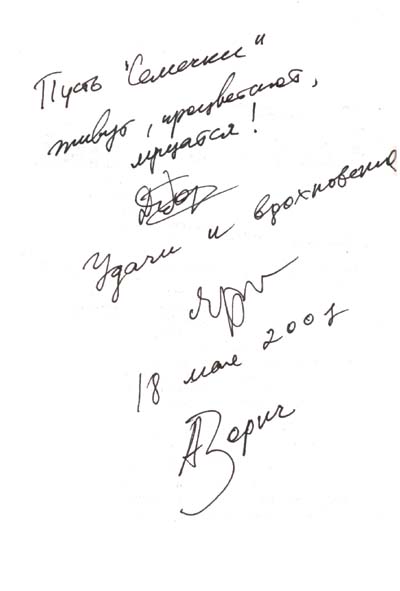 Пусть "Семечки"
живут, процветают,
Удачи и вдохновения
18 мая 2001
А Зорич